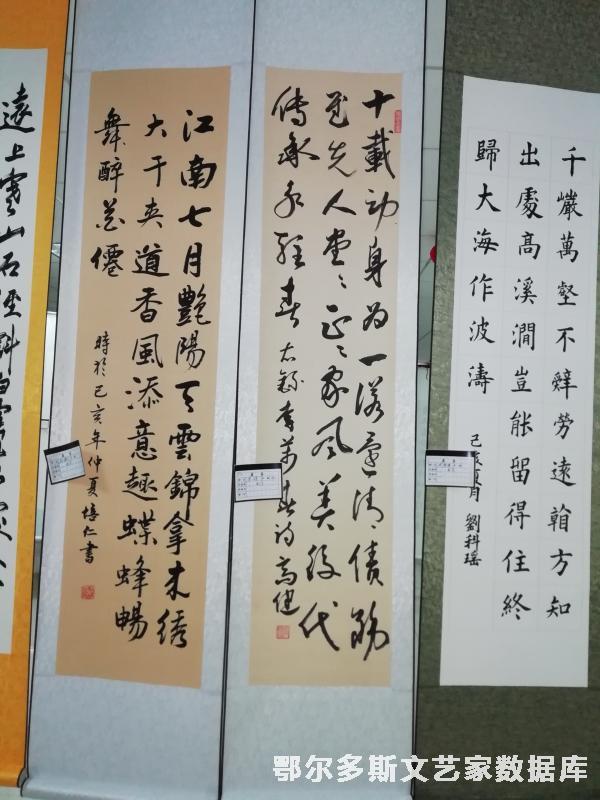 千巖萬壑不辤勞遠看方知
出處高溪澗豈能留得住終
歸大海作波濤
己亥夏月 劉科瑶
十載功身为一诺還清債務
慰先人堂堂正正家风美後代
傳承永驻春
右錄李萬春诗高健
江南七月艷陽天雲錦拿来绣
大千夹道香風添意趣蝶蜂暢
舞醉花僊
時於己亥年仲夏培仁書
遠上寒山石徑斜白雲
鄂尔多斯文艺家数据库